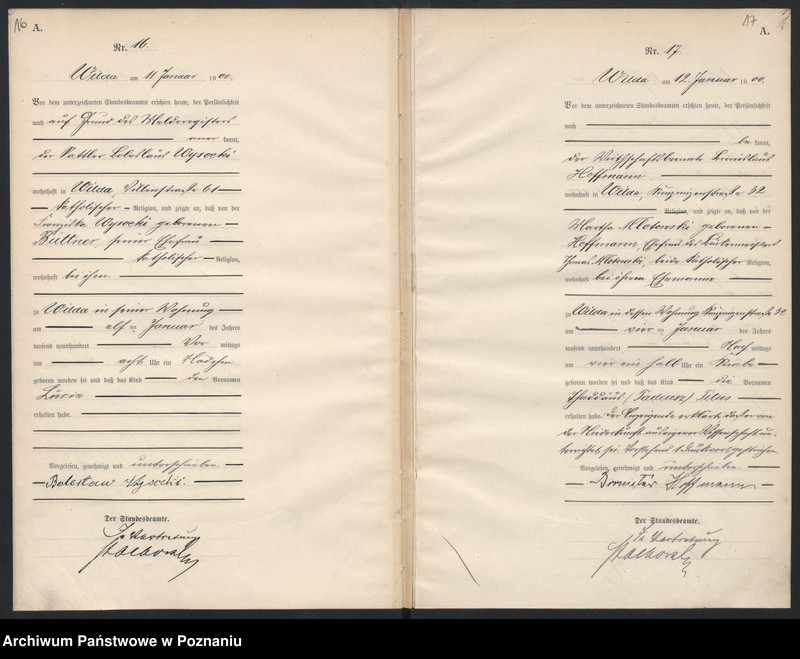 16
A.
Nr. 16.
Wilda am 11 Januar 1900.
Vor dem unterzeichneten Standesbeamten erschien heute, der Persönlichkeit
nach auf Grund des Melderegisters
aner kannt,
der Sattler Boleslaus Wysocki
wohnhaft in Wilda 61
katholischer Religion, und zeigte an, daß von der
Franziska Wysocki geborenen
Büttner, seiner Ehefrau
katholischer Religion,
wohnhaft bei ihm
zu Wilda in seiner Wohnung
am elf ten Januar des Jahres
tausend neunhundert Vor mittags
um acht Uhr ein Mädchen
geboren worden sei und daß das Kind den Vornamen
Lucia
erhalten habe.
Vorgelesen, genehmigt und unterschrieben
Bolesław Wysocki.
Der Standesbeamte.
In Vertretung
17
A.
Nr. 17.
Wilda am 12. Januar 1900.
Vor dem unterzeichneten Standesbeamten erschien heute, der Persönlichkeit
nach
be kannt,
der Wirthschaftsbeamte
Hoffmann
wohnhaft in Wilda, 32
Religion, und zeigte an, daß von der
Martha Mlotowski geborenen
Hoffmann, Ehefrau des
Thomas Mlotowski, beide katholischer Religion,
wohnhaft bei ihrem Ehemanne
zu Wilda in dessen Wohnung 32
am vier ten Januar des Jahres
tausend neunhundert Nach mittags
um vier ein halb Uhr ein Knabe
geboren worden sei und daß das Kind die Vornamen
Thaddäus (Tadeusz) Titus
erhalten habe. Der Anzeigende erklärte daß er von
der Niederkunft aus eigener Wissenschaft un-
terrichtet sei. Vorstehend 1 Druckwort gestrichen.
Vorgelesen, genehmigt und unterschrieben
Hoffmann
Der Standesbeamte.
In Vertretung
Archiwum Państwowe w Poznaniu